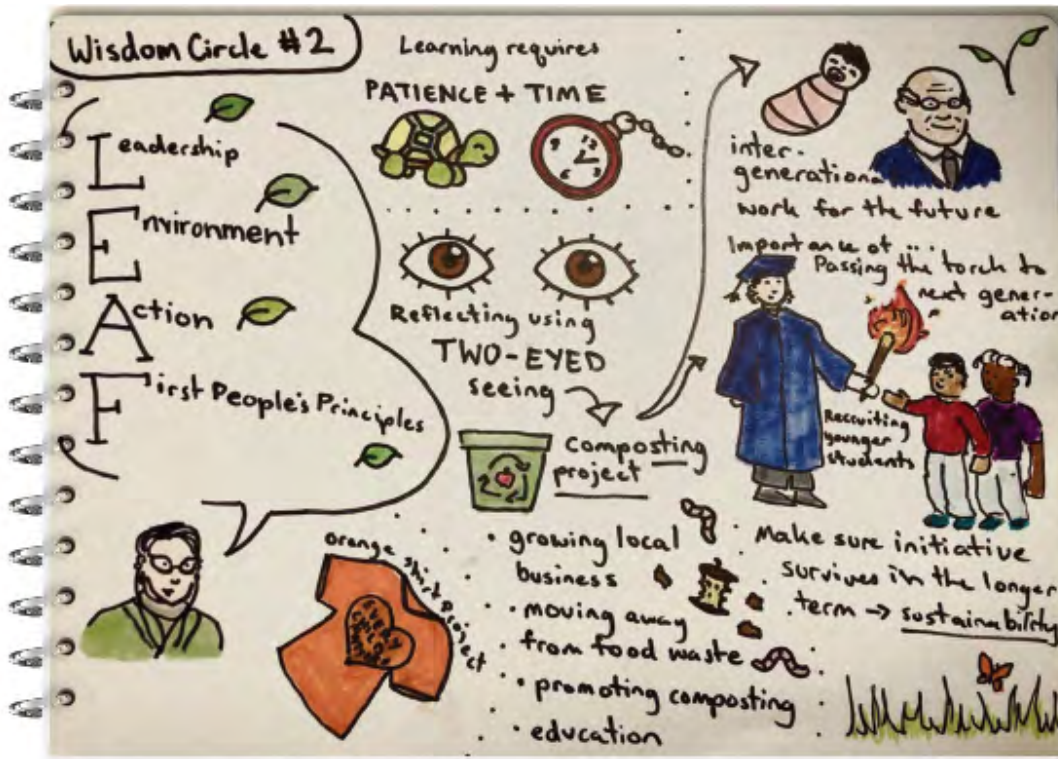 Wisdom Circle #2
Leadership
Environment
Action
First People's Principles
orange shirt project
EVERY
CHILD
Learning requires
PATIENCE + TIME
9 12
6 3
Reflecting using
TWO-EYED
seeing
composting
project
• growing local
business
• moving away
from food waste
• promoting composting
• education
inter-
generational
work for the future
Importance of ...
Passing the torch to
next gener-
ation
Recruiting
younger
students
Make sure initiative
survives in the longer
term → sustainability